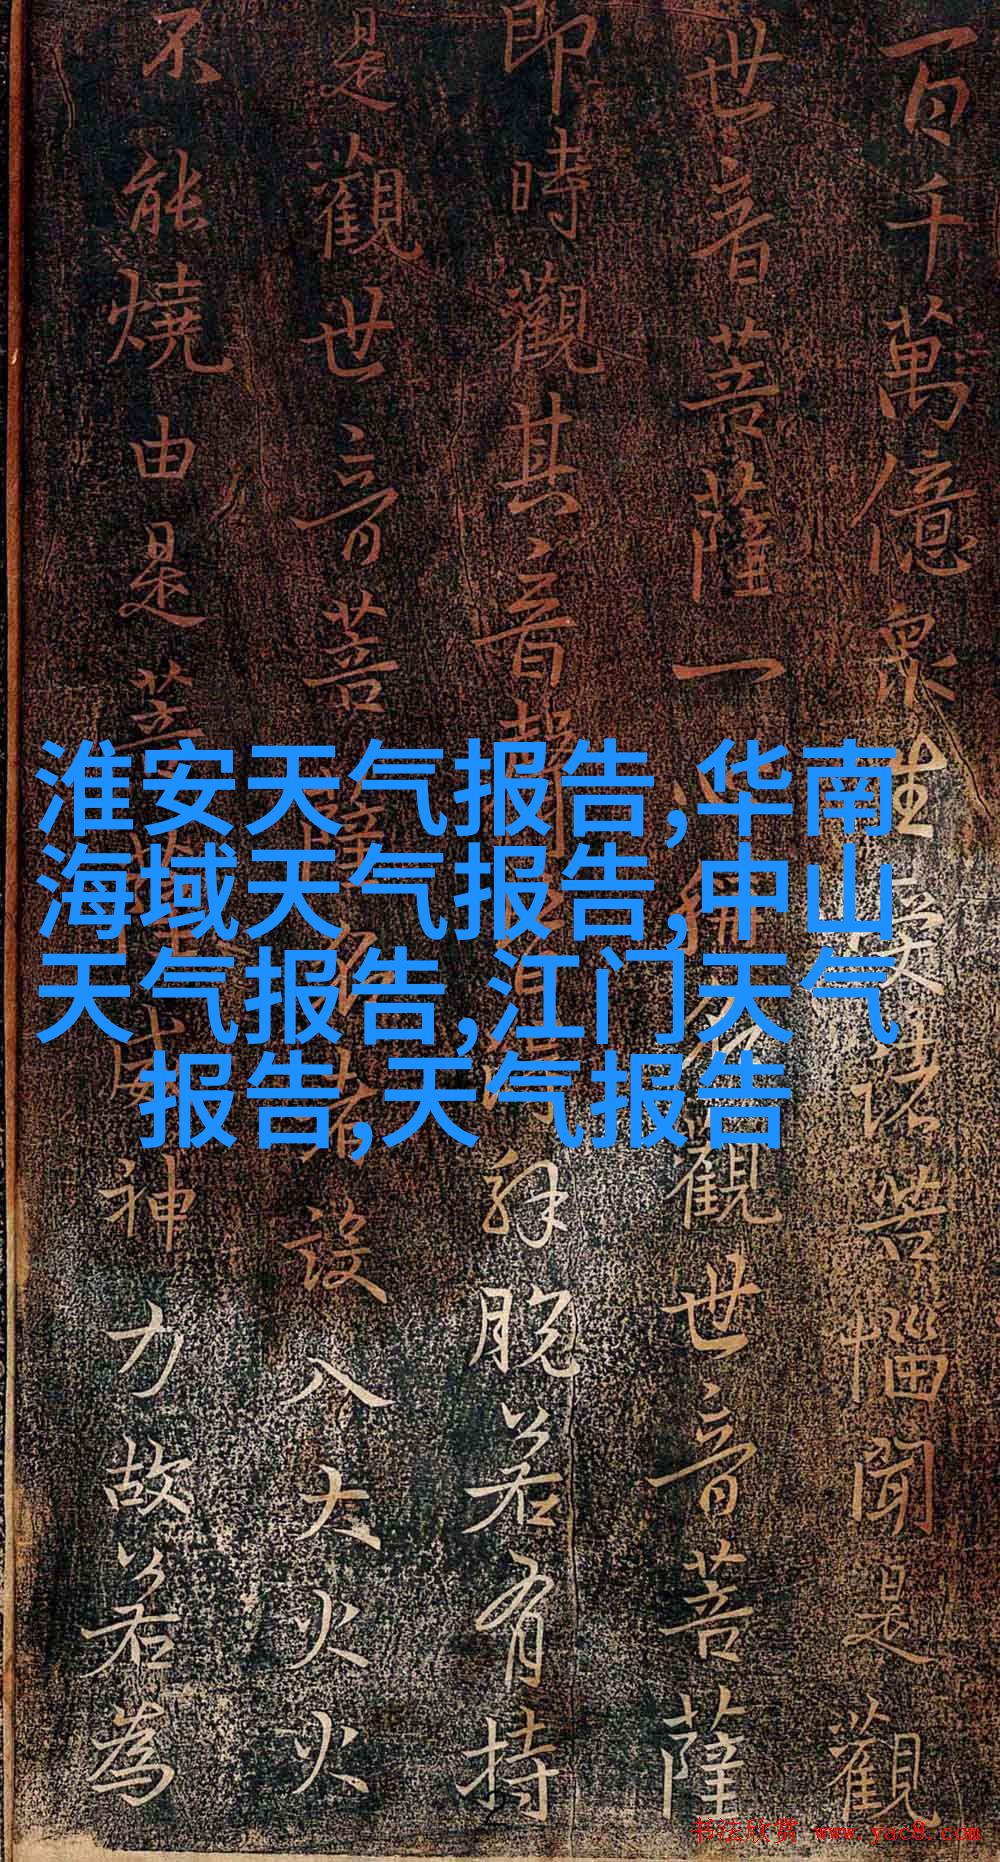 百千萬億眾生受諸苦惱聞是觀
世音菩薩一心稱名觀世音菩薩
即時觀其音聲皆得解脫若有持
是觀世音菩薩名者設入大火火
不能燒由是菩薩威神力故若為
淮安天气报告,华南
海域天气报告,中山
天气报告,江门天气
报告,天气报告
书法欣赏 www.yac8.com